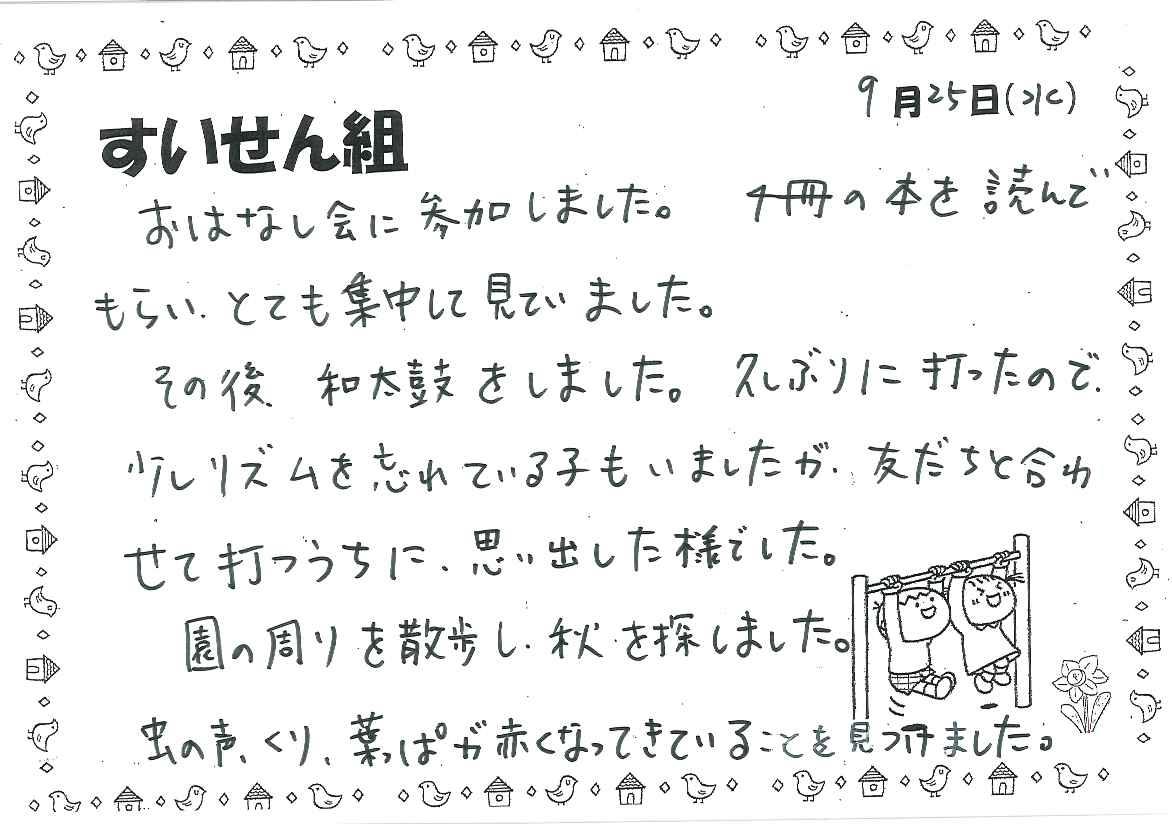 9月25日(水)
すいせん組
おはなし会に参加しました。 4冊の本を読んで
もらい、とても集中して見ていました。
その後、和太鼓をしました。久しぶりに打ったので、
少しリズムを忘れている子もいましたが、友だちと合わ
せて打つうちに、思い出した様でした。
園の周りを散歩し、秋を探しました。
虫の声、くり、葉っぱが赤くなってきていることを見つけました。